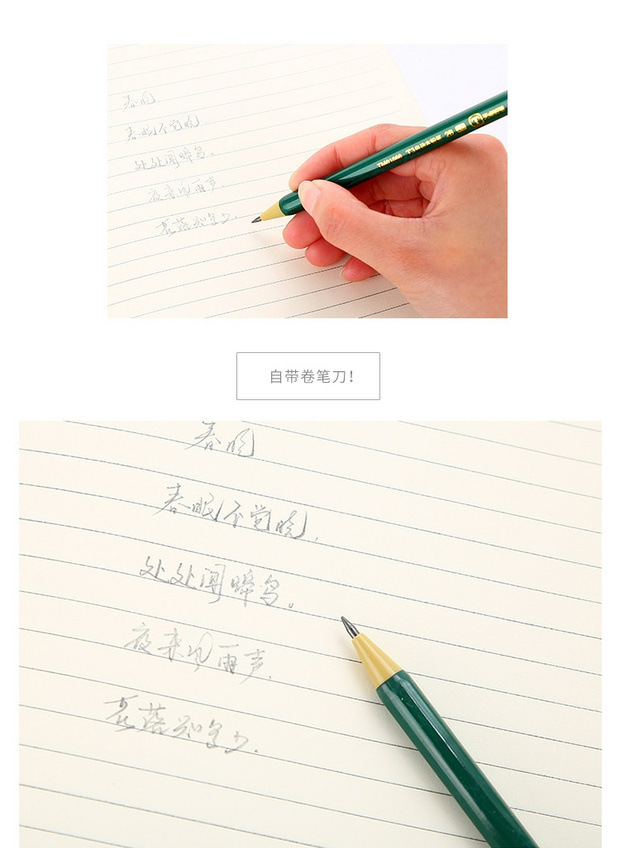 春晓
春眠不觉晓,
处处闻啼鸟。
夜来风雨声.
花落知多少.
2B
自带卷笔刀!
春晓
春眠不觉晓,
处处闻啼鸟。
夜来风雨声.
花落知多少.